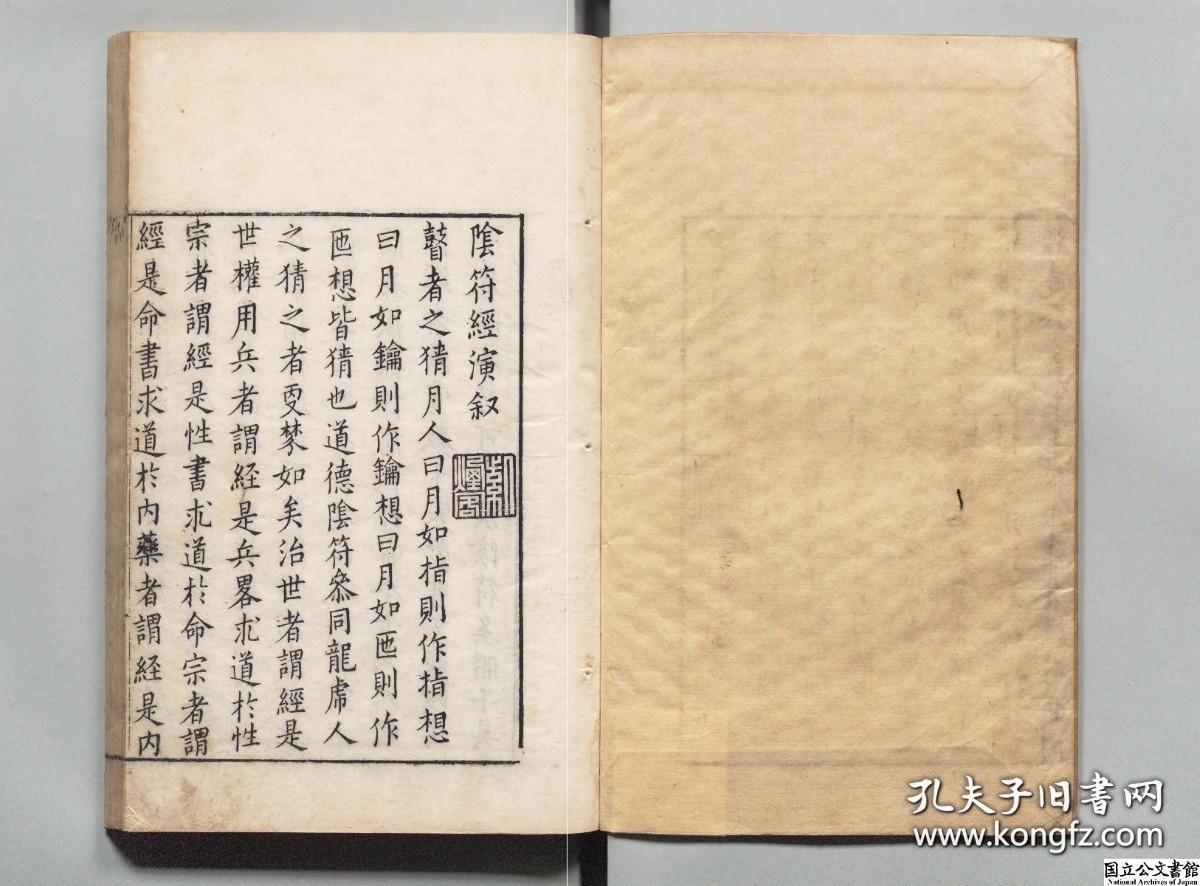 陰符經演叙
瞽者之猜月人曰月如指則作指想
曰月如鑰則作鑰想曰月如匜則作
匜想皆猜也道德陰符叅同龍虎人
之猜之者更棼如矣治世者謂經是
世權用兵者謂経是兵畧求道於性
宗者謂經是性書求道於命宗者謂
經是命書求道於內藥者謂経是內
孔夫子旧書网
www.kongfz.com
国立公文書館
National Archives of Japan